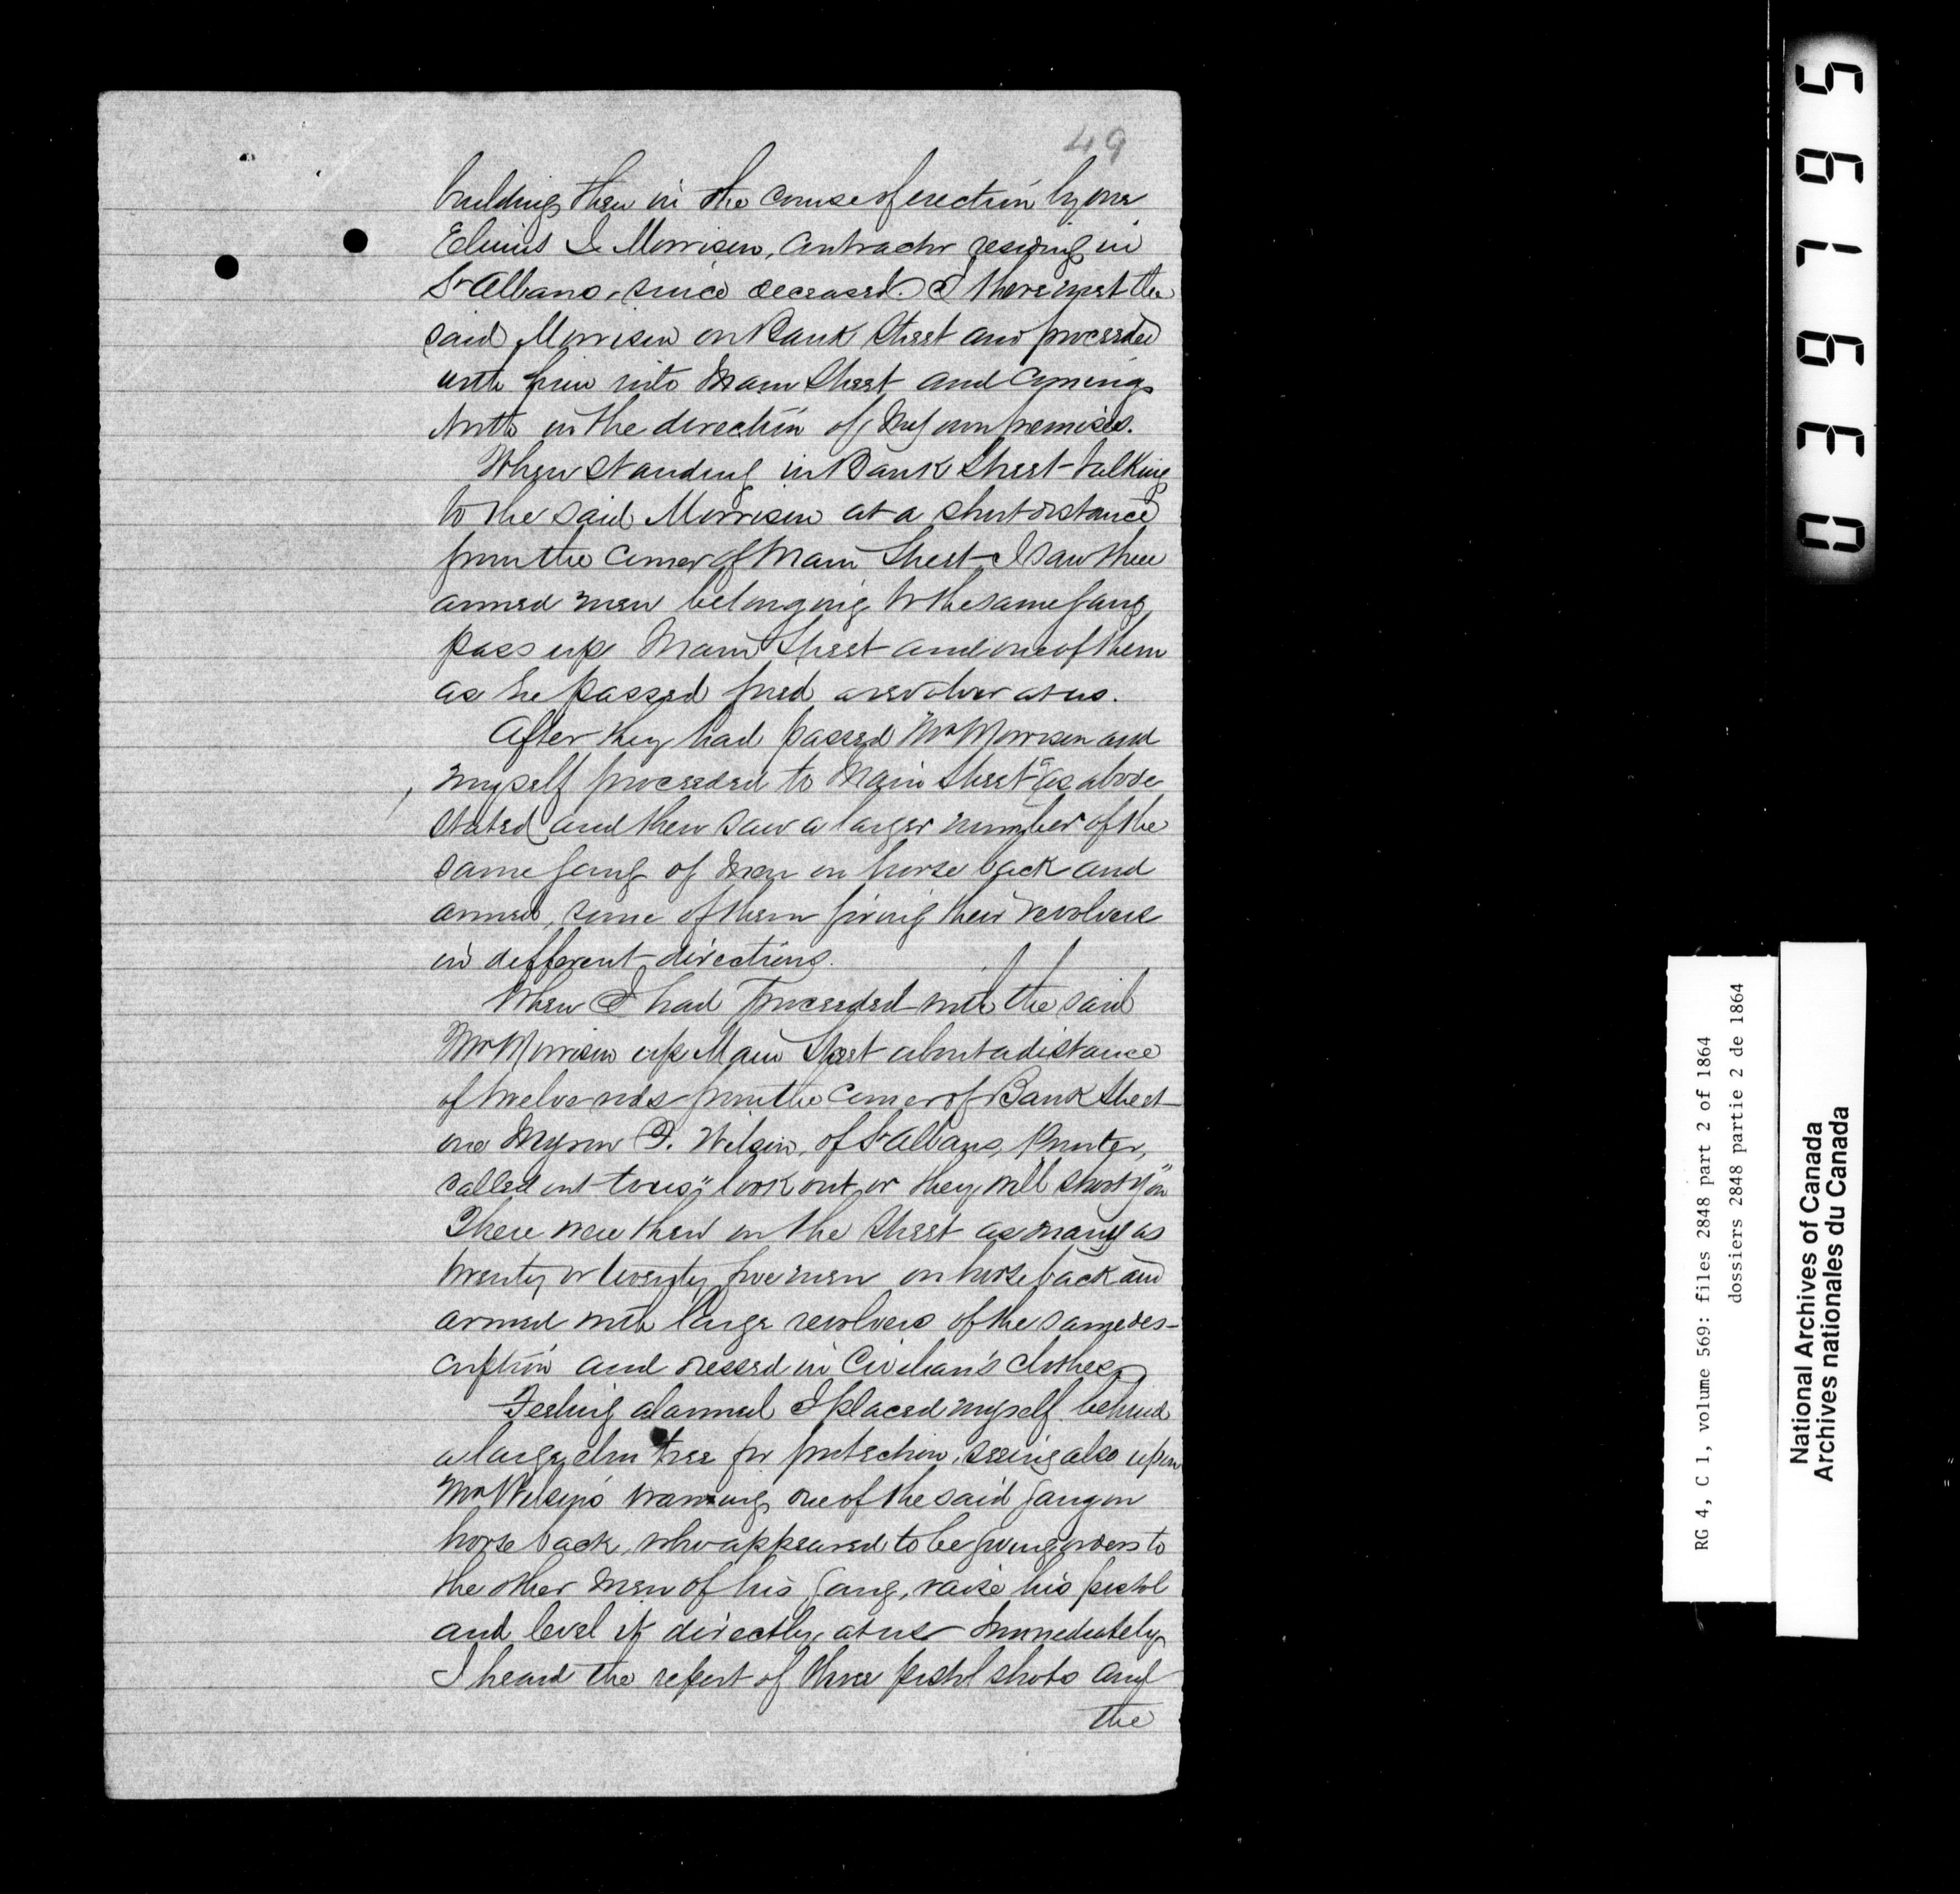 49
building then in the course of erection by one
Elinus J. Morrison, Contractor residing in
St Albans, since deceased. I there met the
said Morrison on Bank Street and proceeded
with him into Main Street and Coming
North in the direction of my own premises.
When standing in Bank Street talking
to the said Morrison at a short distance
from the Corner of Main Street I saw three
armed men belonging to the same gang
pass up Main Street and one of them
as he passed fired a revolver at us.
After they had passed Mr Morrison and
myself proceeded to Main Street (as above
stated) and then saw a larger number of the
same gang of men on horse back and
armed, some of them firing their revolvers
in different directions.
When I had proceeded with the said
Mr Morrison up Main Street about a distance
of twelve rods from the Corner of Bank Street
one Myron F. Wilson, of St Albans, Printer,
called out to us, "look out or they will shoot you"
There were then on the Street as many as
twenty or twenty five men on horse back and
armed with large revolvers of the same des-
cription and dressed in Civilian's clothes.
Feeling alarmed I placed myself behind
a large elm tree for protection, seeing also upon
Mr Wilson's warning one of the said gang on
horse back, who appeared to be giving orders to
the other men of his gang, raise his pistol
and level it directly at us Immediately
I heard the report of three pistol shots and
the
039795
RG 4, C 1, volume 569: files 2848 part 2 of 1864
dossiers 2848 partie 2 de 1864
National Archives of Canada
Archives nationales du Canada